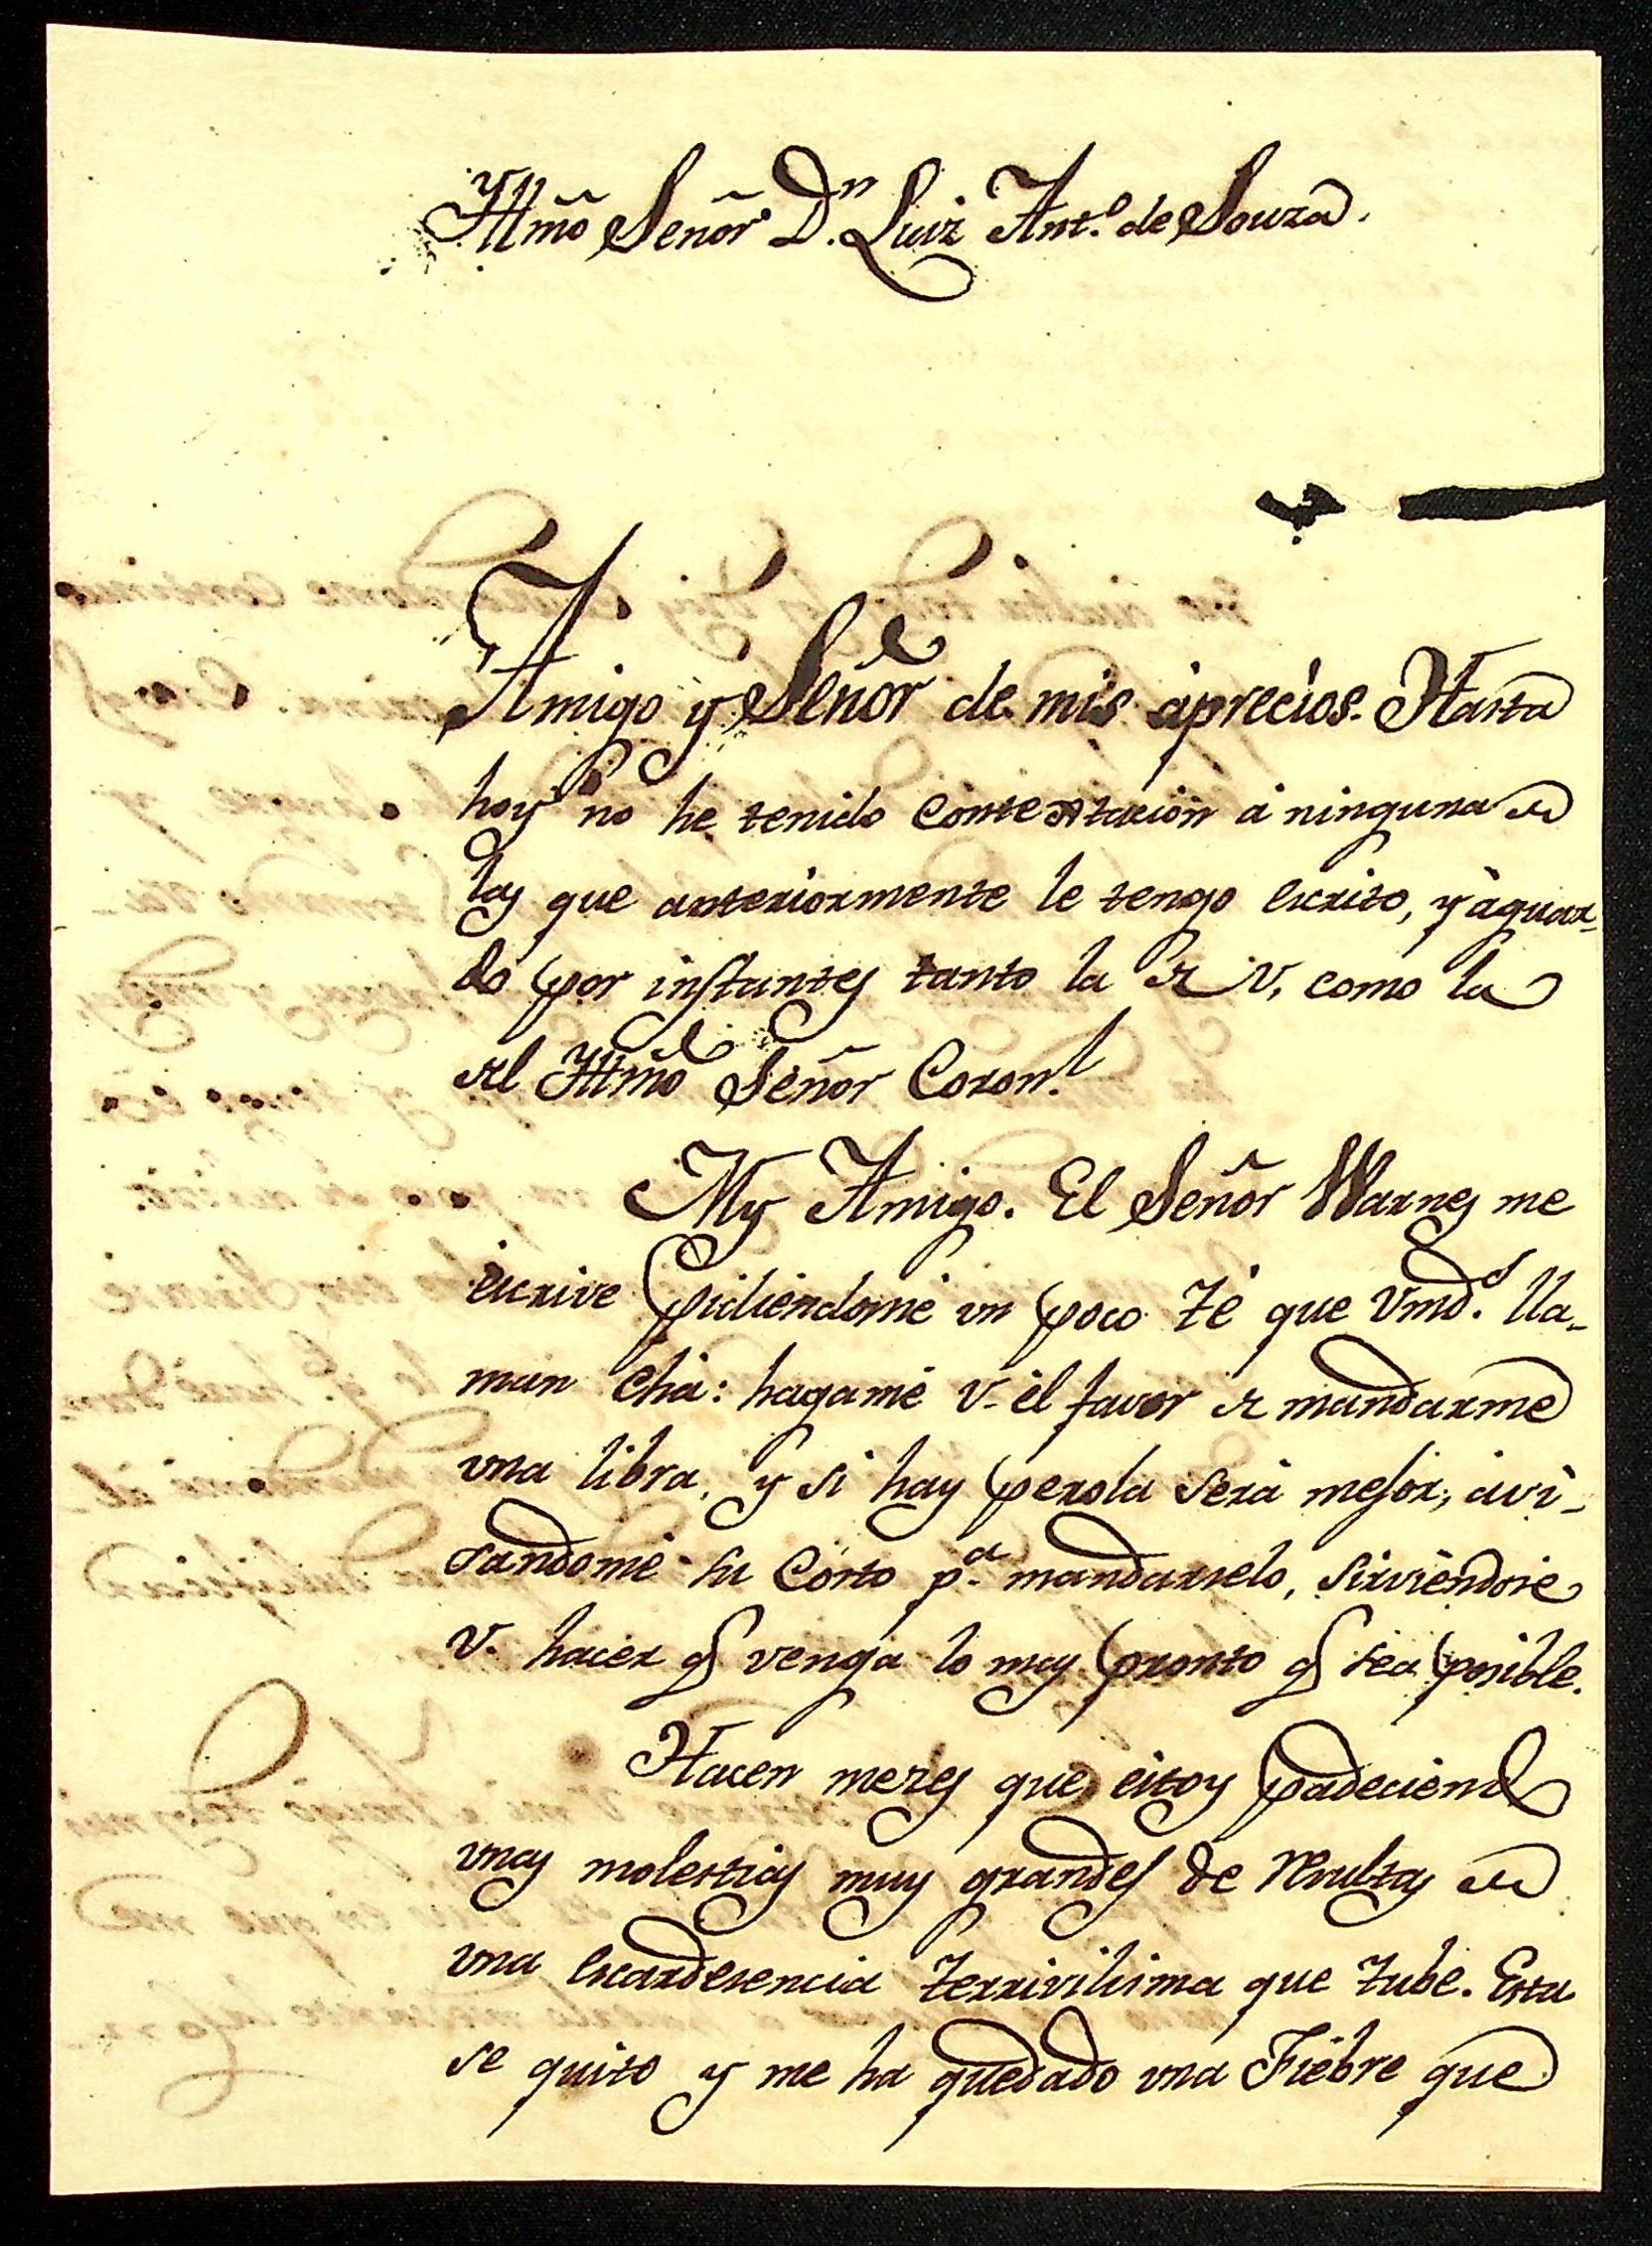 Yllmõ Señor Dn. Luiz Ant.o de Souza.
Amigo y Señor de mis àprecios. Hasta
hoy no he tenido contextacion à ninguna de
las que anteriormente le tengo escrito, y àguar-
do por instantes tanto la de V, como la
del Yllmõ Señor Coron.l
My Amigo. El Señor Warnes me
escrive pidiendome un poco Té que Vmd.s lla-
man Chà: hagamé V. èl favor de mandarme
una libra, y si hay perola serà mejor, avi-
sandome su Costo p.a mandarselo, sirviendose
V. hacer q venga lo mas pronto q sea posible.
Hacen mezes que estoy padeciendo
unas molestias muy grandes de resultas de
una escardesencia terrivilisima que tube. Esta
se quito y me ha quedado una Fiebre que